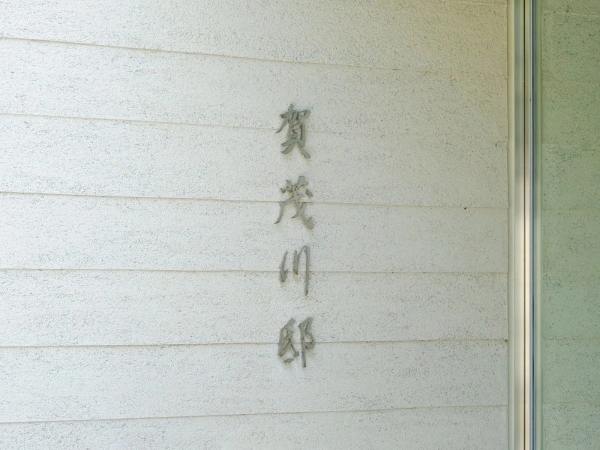 賀茂川邸